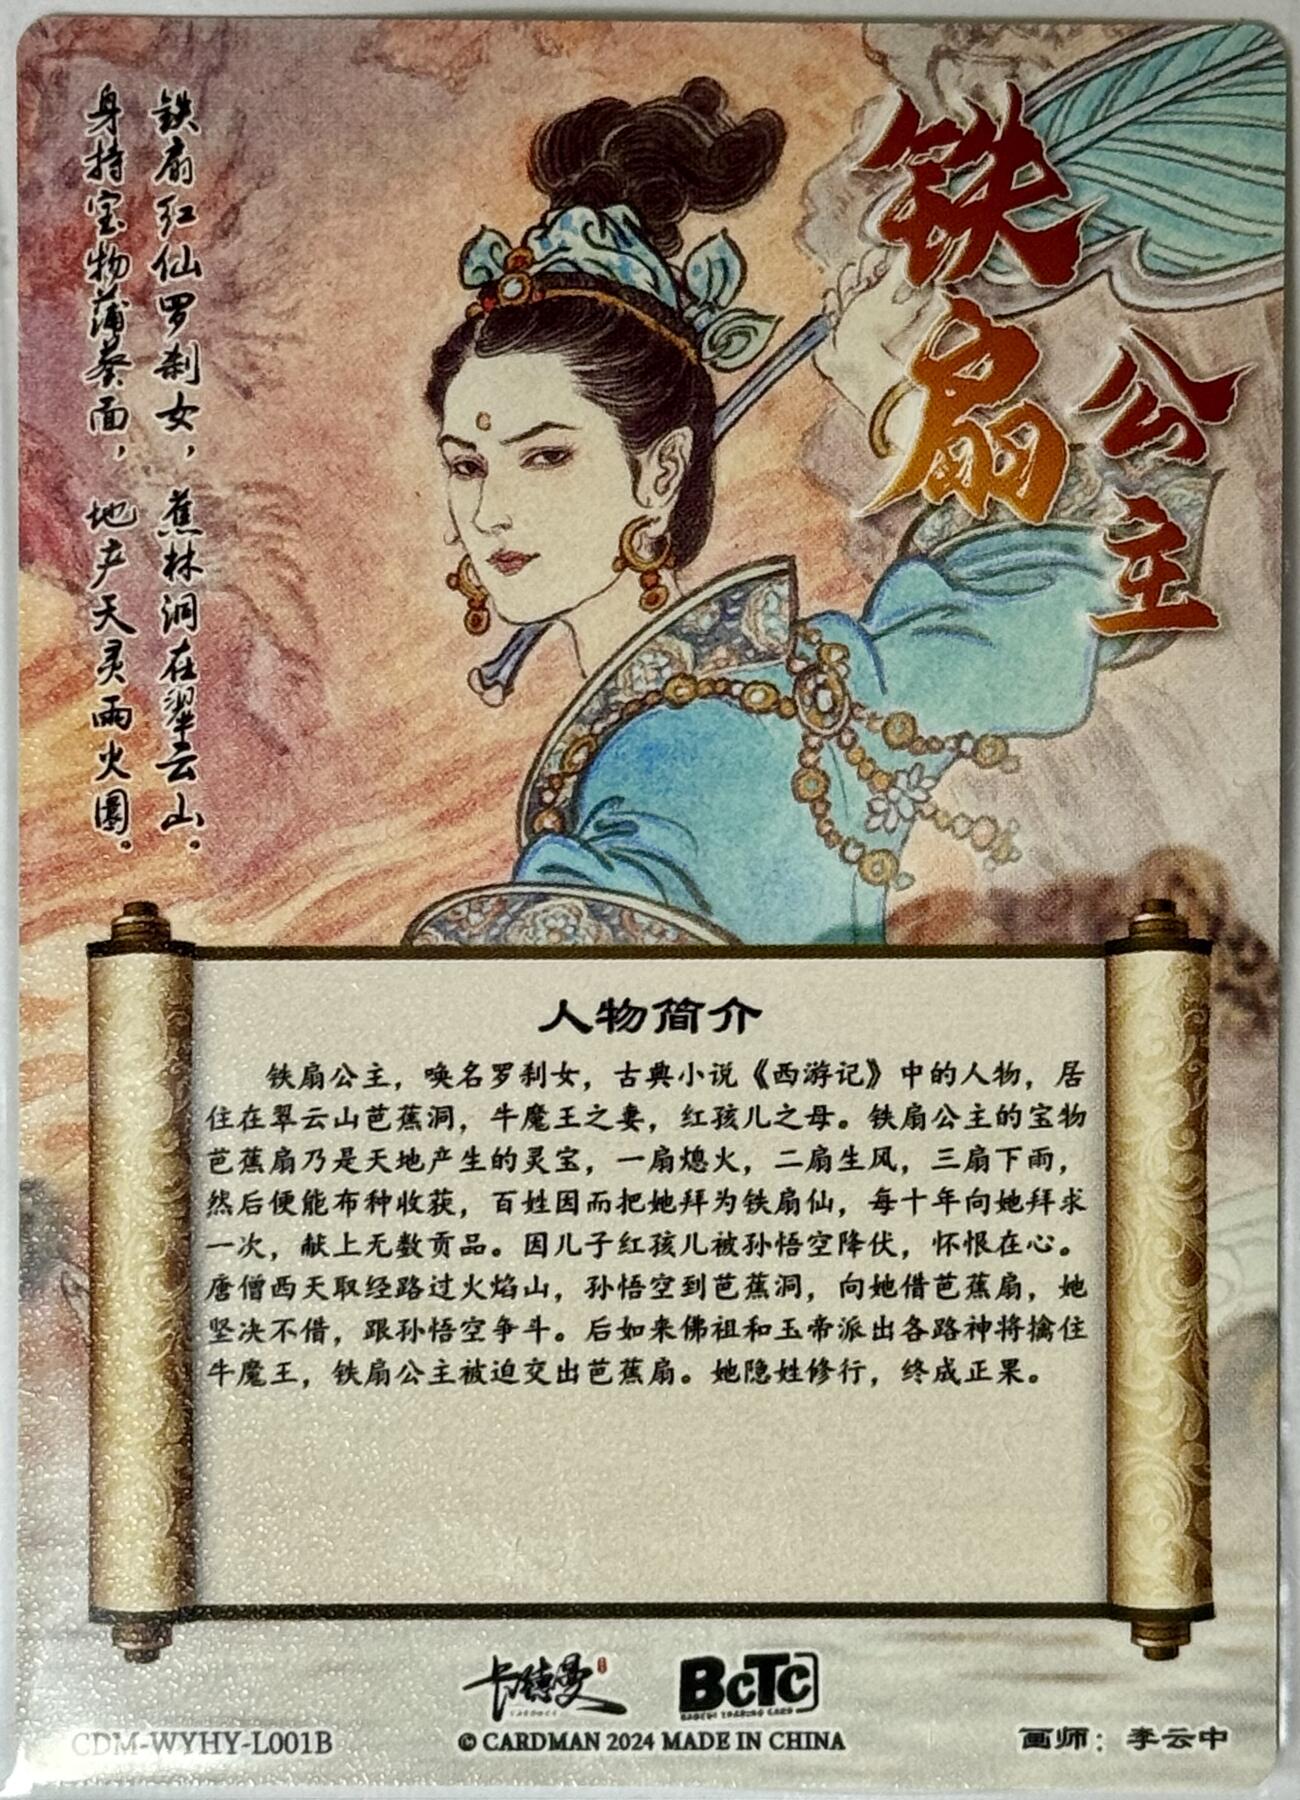 铁扇公主
铁扇红仙罗刹女，蕉林洞在翠云山。
身持宝物蒲葵面，地产天灵雨火圜。
人物简介
铁扇公主，唤名罗刹女，古典小说《西游记》中的人物，居
住在翠云山芭蕉洞，牛魔王之妻，红孩儿之母。铁扇公主的宝物
芭蕉扇乃是天地产生的灵宝，一扇熄火，二扇生风，三扇下雨，
然后便能布种收获，百姓因而把她拜为铁扇仙，每十年向她拜求
一次，献上无数贡品。因儿子红孩儿被孙悟空降伏，怀恨在心。
唐僧西天取经路过火焰山，孙悟空到芭蕉洞，向她借芭蕉扇，她
坚决不借，跟孙悟空争斗。后如来佛祖和玉帝派出各路神将擒住
牛魔王，铁扇公主被迫交出芭蕉扇。她隐姓修行，终成正果。
卡德曼
BCTC
CDM-WYHY-L001B
© CARDMAN 2024 MADE IN CHINA
画师：李云中